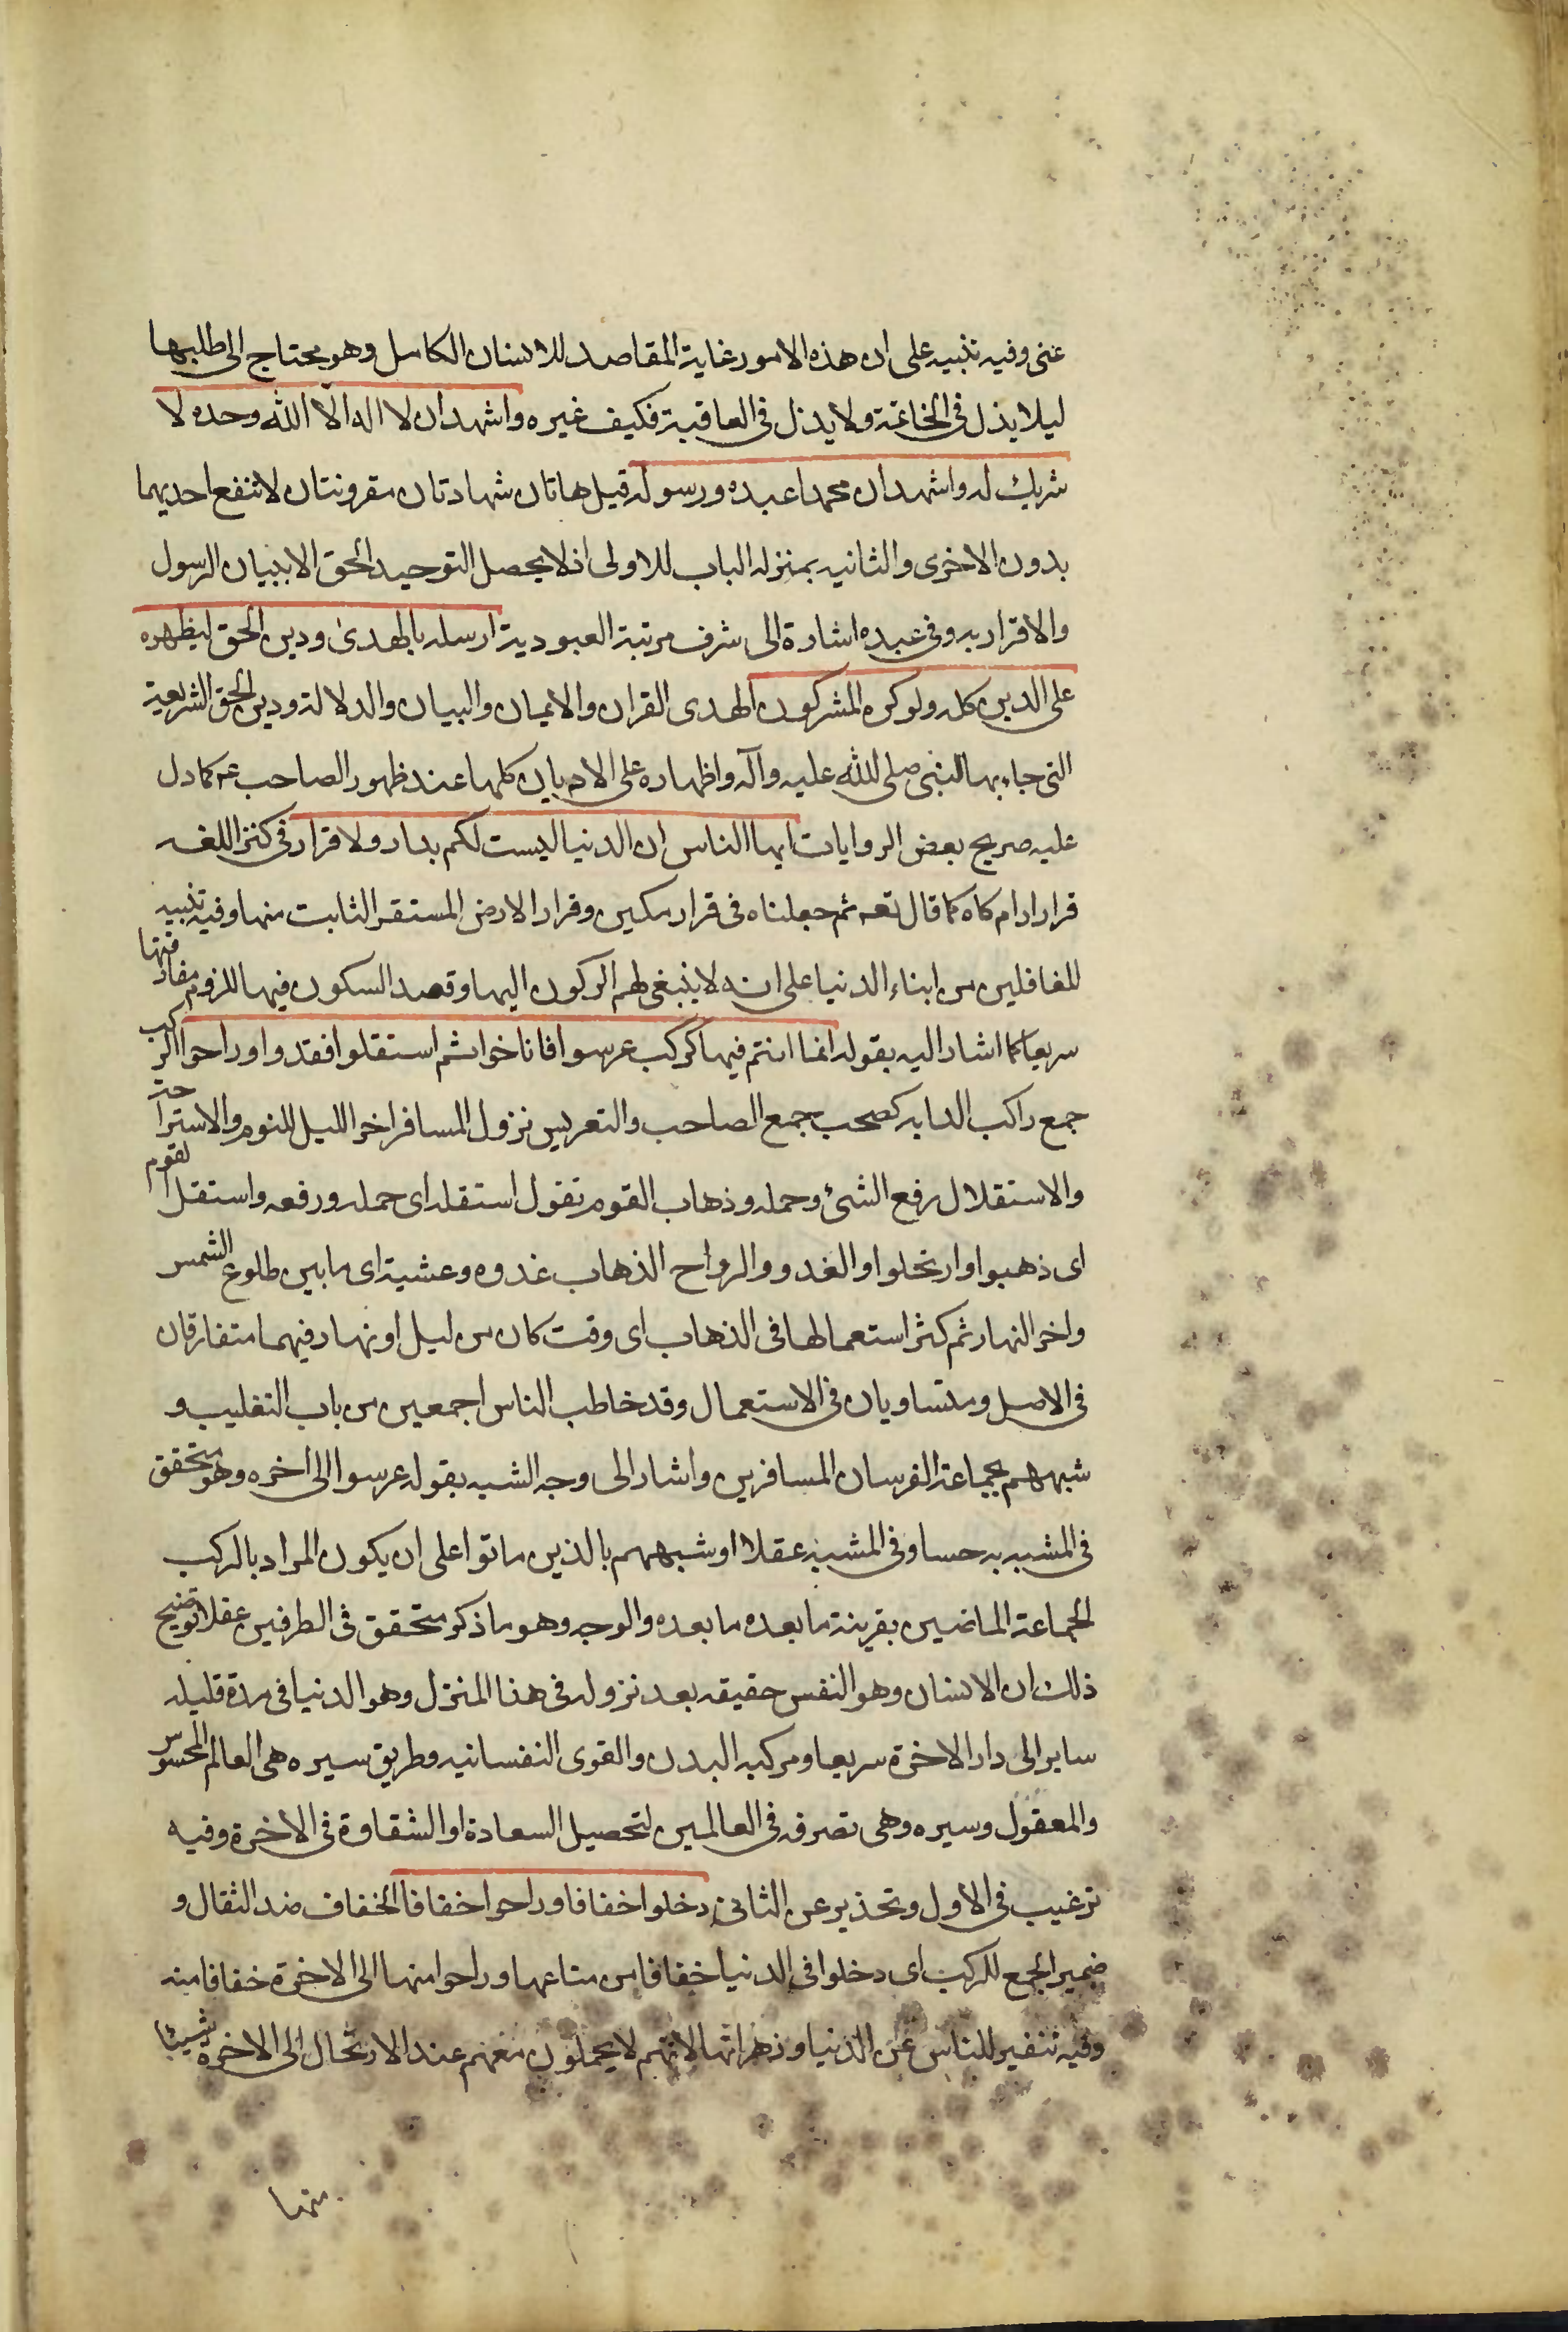 عنى وفيه تنبيه على ان هذه الامور غاية المقاصد للانسان الكامل وهو محتاج الى طلبها
ليلا يذل فى الخاتمة ولا يدزل فى العاقبة فكيف غيره واشهد ان لا اله الا الله وحده لا
شريك له واشهد ان محمدا عبده ورسوله قيل هاتان شهادتان مقرونتان لا تنفع احديهما
بدون الاخرى والثانيه بمنزله الباب للاولى اذ لا يحصل التوحيد الحق الا ببيان الرسول
والاقرار به وفى عبده اشارة الى شرف مرتبة العبودية ارسله بالهدى ودين الحق ليظهره
على الدين كله ولو كره المشركون الهدى القران والايمان والبيان والدلالة ودين الحق الشريعة
التى جاء بها النبى صلى الله عليه وآله واظهاره على الاديان كلها عند ظهور الصاحب ع كما دل
عليه صريح بعض الروايات ايها الناس ان الدنيا ليست لكم بدار ولا قرار فى كنز اللغه
قرار ارام كاه كما قال تعه ثم جعلناه فى قرار مكين وقرار الارض المستقر الثابت منها وفيه تنبيه
للغافلين من ابناء الدنيا على انه لا ينبغى لهم الركون اليها وقصد السكون فيها للزوم مفارقتها
سريعا كما اشار اليه بقوله انما انتم فيها كركب عرسوا فاناخوا ثم استقلوا فغدوا وراحوا الركب
جمع راكب الدابه كصحب جمع الصاحب والتعريس نزول المسافر اخر الليل للنوم والاستراحة
والاستقلال رفع الشئ وحمله وذهاب القوم تقول استقله اى حمله ورفعه واستقل القوم
اى ذهبوا وارتحلوا والغدو والرواح الذهاب غدوه وعشية اى ما بين طلوع الشمس
واخر النهار ثم كثر استعمالها فى الذهاب اى وقت كان من ليل او نهار فيهما متفارقان
فى الاصل ومتساويان فى الاستعمال وقد خاطب الناس اجمعين من باب التغليب و
شبههم بجماعة الفرسان المسافرين واشار الى وجه الشبه بقوله عرسوا الى اخره وهو متحقق
فى المشبه به حسا وفى المشبه عقلا او شبههم بالذين ماتوا على ان يكون المراد بالركب
الجماعة الماضين بقرينة ما بعده ما بعده والوجه وهو ما ذكر متحقق فى الطرفين عقلا توضيح
ذلك ان الانسان وهو النفس حقيقه بعد نزوله فى هذا المنزل وهو الدنيا فى مدة قليله
ساير الى دار الاخرة سريعا ومركبه البدن والقوى النفسانيه وطريق سيره هى العالم المحسوس
والمعقول وسيره وهى تصرفه فى العالمين لتحصيل السعادة او الشقاوة فى الاخرة وفيه
ترغيب فى الاول وتحذير عن الثانى دخلوا خفافا وراحوا خفافا الخفاف ضد الثقال و
ضمير الجمع للركب اى دخلوا فى الدنيا خفافا من متاعها وراحوا منها الى الاخرة خفافا منه
وفيه تنفير للناس عن الدنيا وزهراتها لانهم لا يحملون معهم عند الارتحال الى الاخرة شيئا
منها